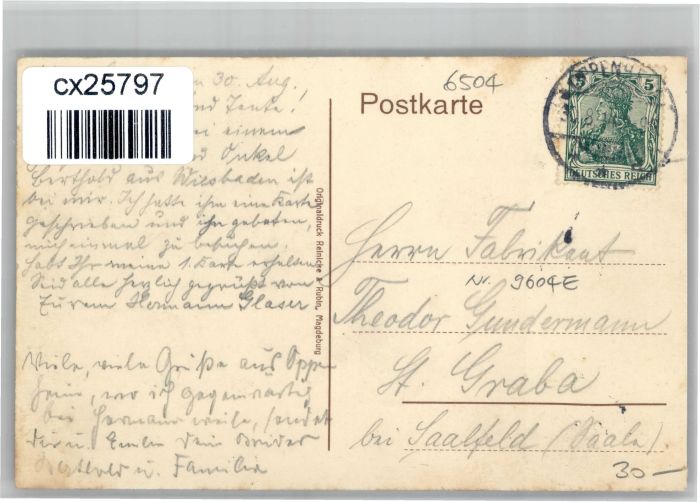 cx25797
30. Aug.
und Tante!
bei einem
und Onkel
Berthold aus Wiesbaden ist
bei mir. Ich hatte ihm eine Karte
geschrieben und ihn gebeten,
mich einmal zu besuchen.
Habt Ihr meine 1. Karte erhalten
Seid alle herzlich gegrüßt von
Eurem Hermann Glaser
Viele, viele Grüße aus Oppen
heim, wo ich gegenwärtig
bei Hermann weile, sendet
Dir u. Dein Bruder
Berthold u. Familie
Originaldruck Reinicke & Rubin, Magdeburg
6504
Postkarte
5
DEUTSCHES REICH
Herrn Fabrikant
Nr. 9604E
Theodor Gundermann
St. Graba
bei Saalfeld (Saale)
30—